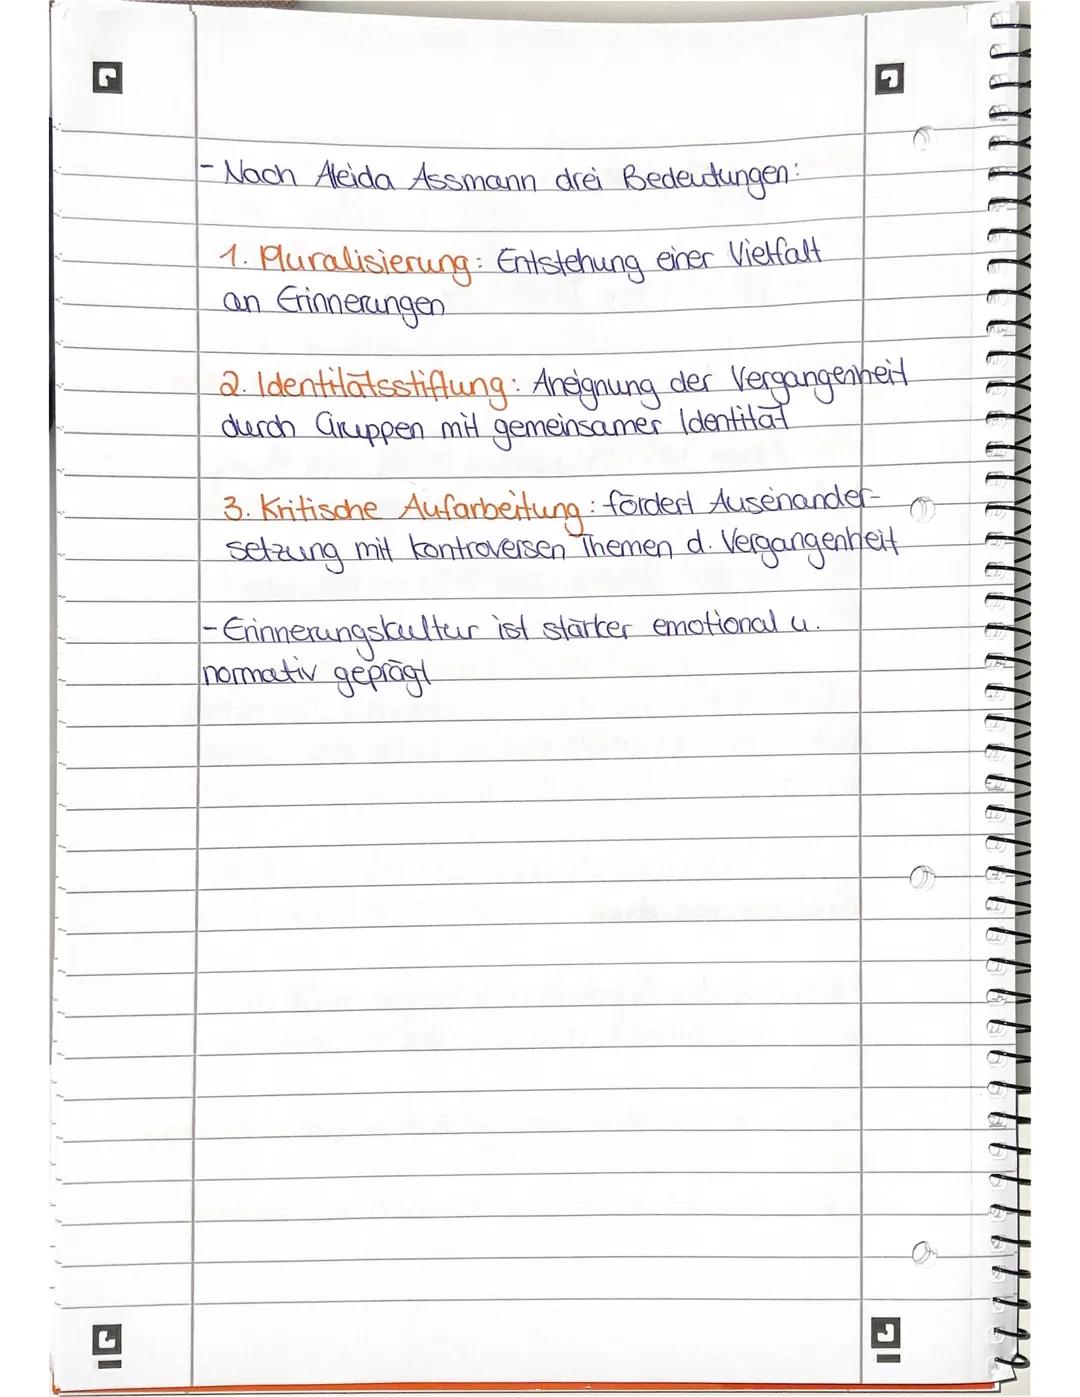 - Nach Aleida Assmann drei Bedeutungen:
1. Pluralisierung: Entstehung einer Vielfalt
an Erinnerungen
2. Identitätsstiftung: Aneignung der Vergangenheit
durch Gruppen mit gemeinsamer Identität
3. Kritische Aufarbeitung: fördert Auseinander-
setzung mit kontroversen Themen d. Vergangenheit
- Erinnerungskultur ist stärker emotional u.
normativ geprägt